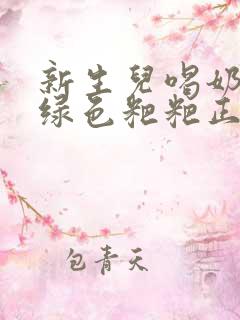 新生兒喝奶
绿色粑粑正
包青天